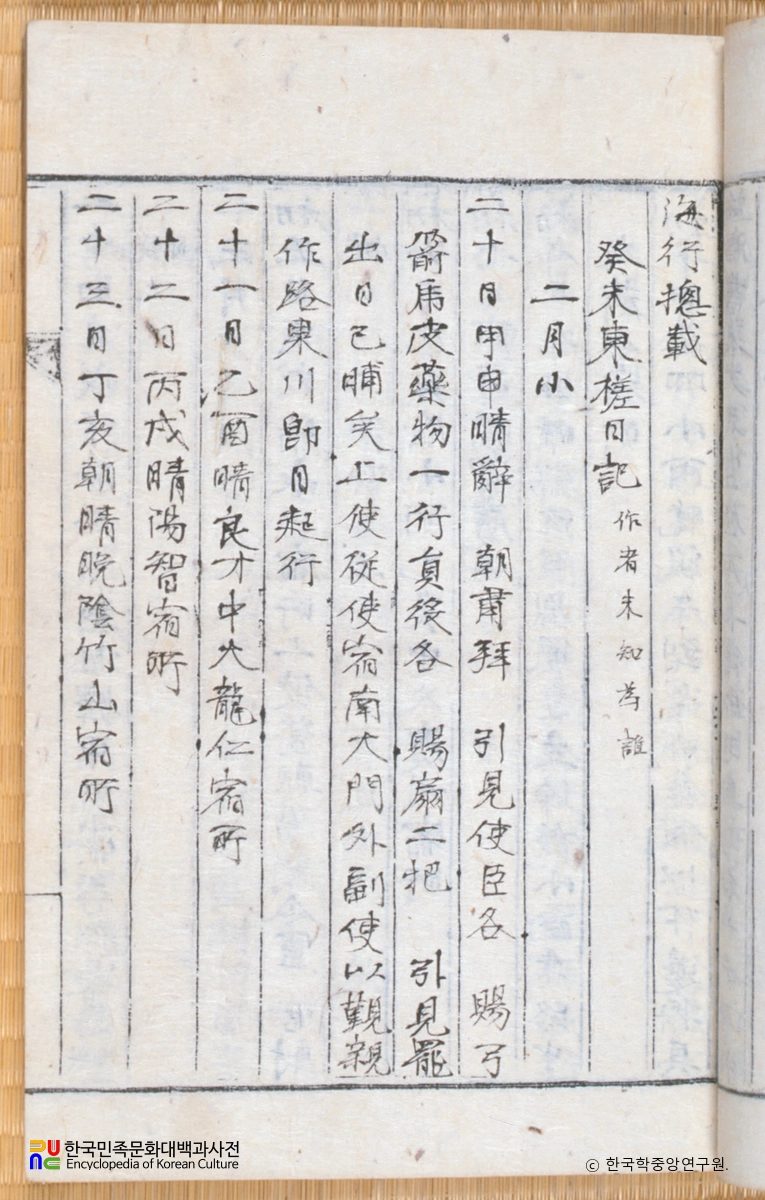 海行摠載
癸未東槎日記 作者未知爲誰
二月小
二十日甲申晴辭 朝肅拜 引見使臣各 賜弓
箭馬皮藥物一行員役各 賜扇二把 引見罷
出日已晡矣上使從使宿南大門外副使以觀親
作路果川卽日起行
二十一日乙酉晴良才中火龍仁宿所
二十二日丙戌晴陽智宿所
二十三日丁亥朝晴晩陰竹山宿所
한국민족문화대백과사전
Encyclopedia of Korean Culture
© 한국학중앙연구원.